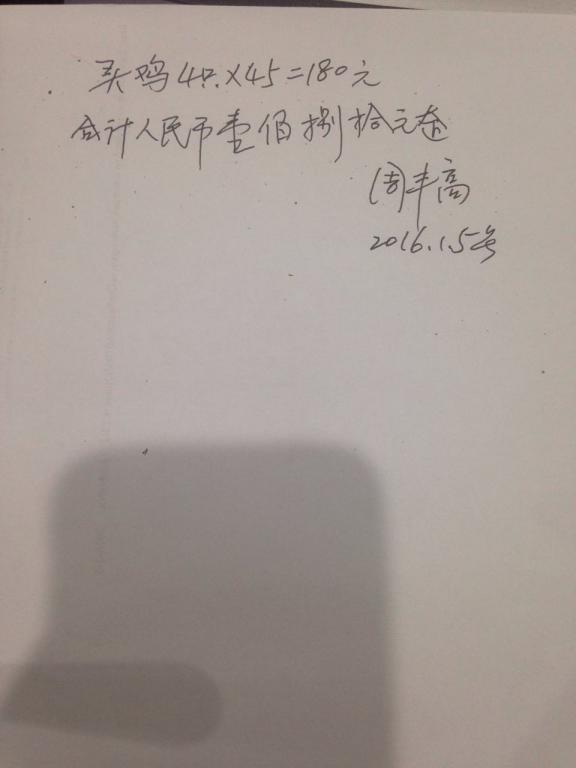 买鸡4只×45=180元
合计人民币壹佰捌拾元整
周丰高
2016.1.5号